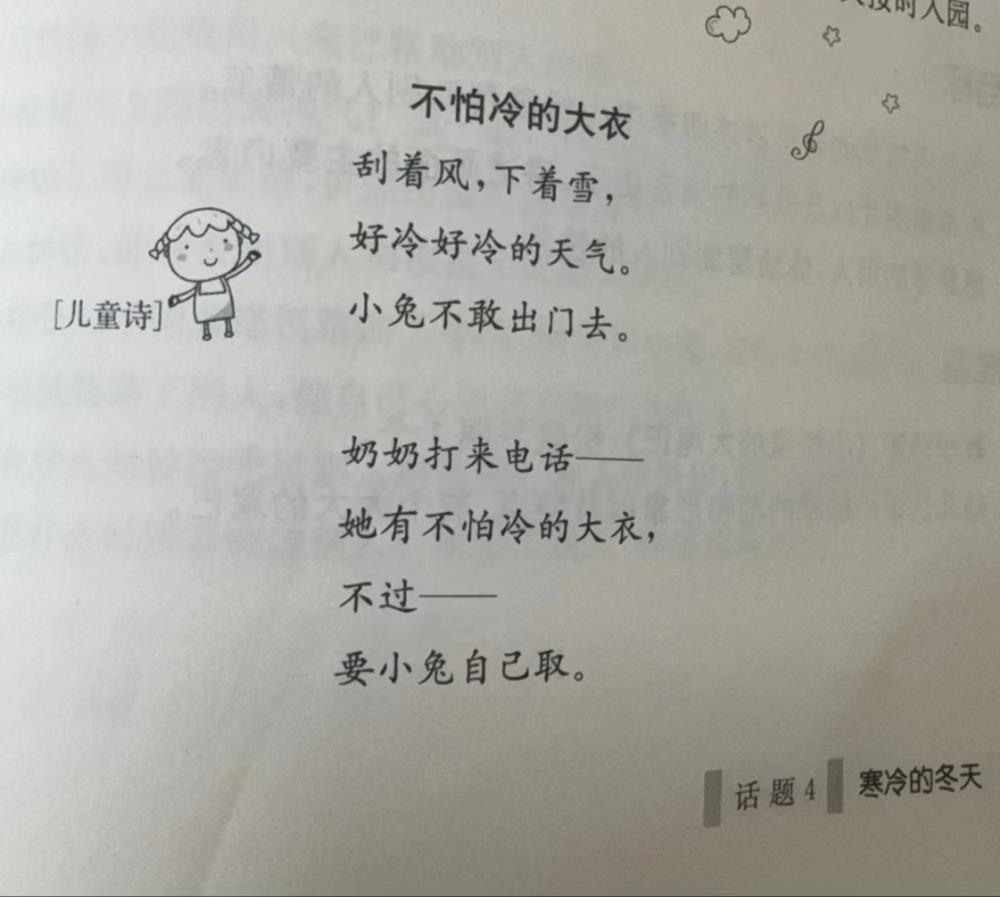 入园。
不怕冷的大衣
刮着风，下着雪，
好冷好冷的天气。
[儿童诗]
小兔不敢出门去。
奶奶打来电话——
她有不怕冷的大衣，
不过——
要小兔自己取。
话题4 寒冷的冬天